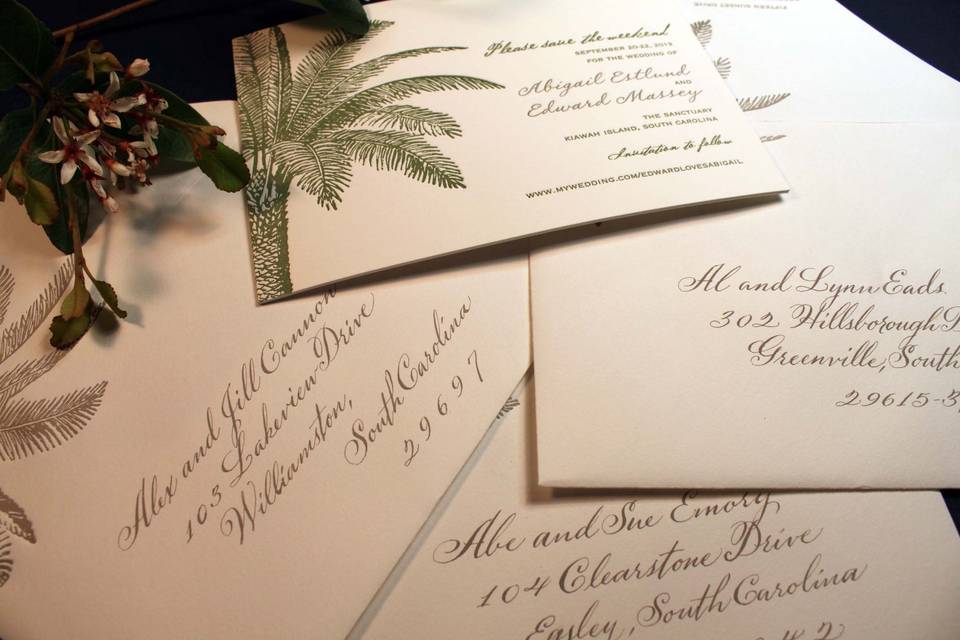 FIFTEEN SUNSET DRIVE
Please save the weekend
SEPTEMBER 20-22, 2013
FOR THE WEDDING OF
Abigail Estlund
AND
Edward Massey
THE SANCTUARY
KIAWAH ISLAND, SOUTH CAROLINA
Invitation to follow
WWW.MYWEDDING.COM/EDWARDLOVESABIGAIL
Al and Lynn Eads
302 Hillsborough
Greenville, South
29615-3
Alex and Jill Cannon
103 Lakeview Drive
Williamston,
South Carolina
29697
Abe and Sue Emory
104 Clearstone Drive
Easley, South Carolina